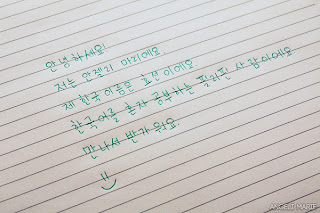 안녕하세요!
저는 안젤리 마리에요.
제 한국 이름은 효린이에요
한국어를 혼자 공부하는 필리핀 사람이에요.
만나서 반가워요.
ANGELI MARIE